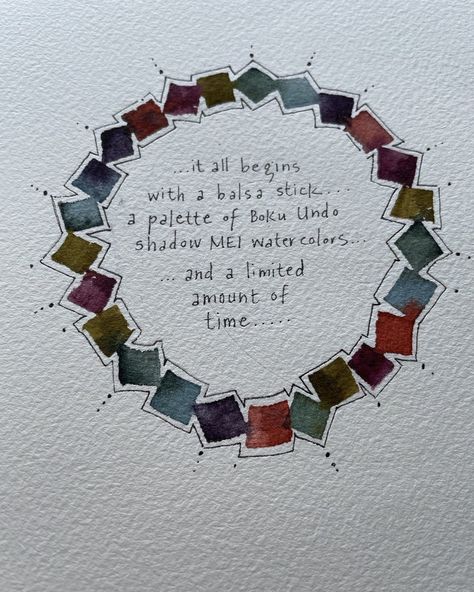 ...it all begins
with a balsa stick....
a palette of Boku Undo
shadow MEI watercolors...
... and a limited
amount of
time.....